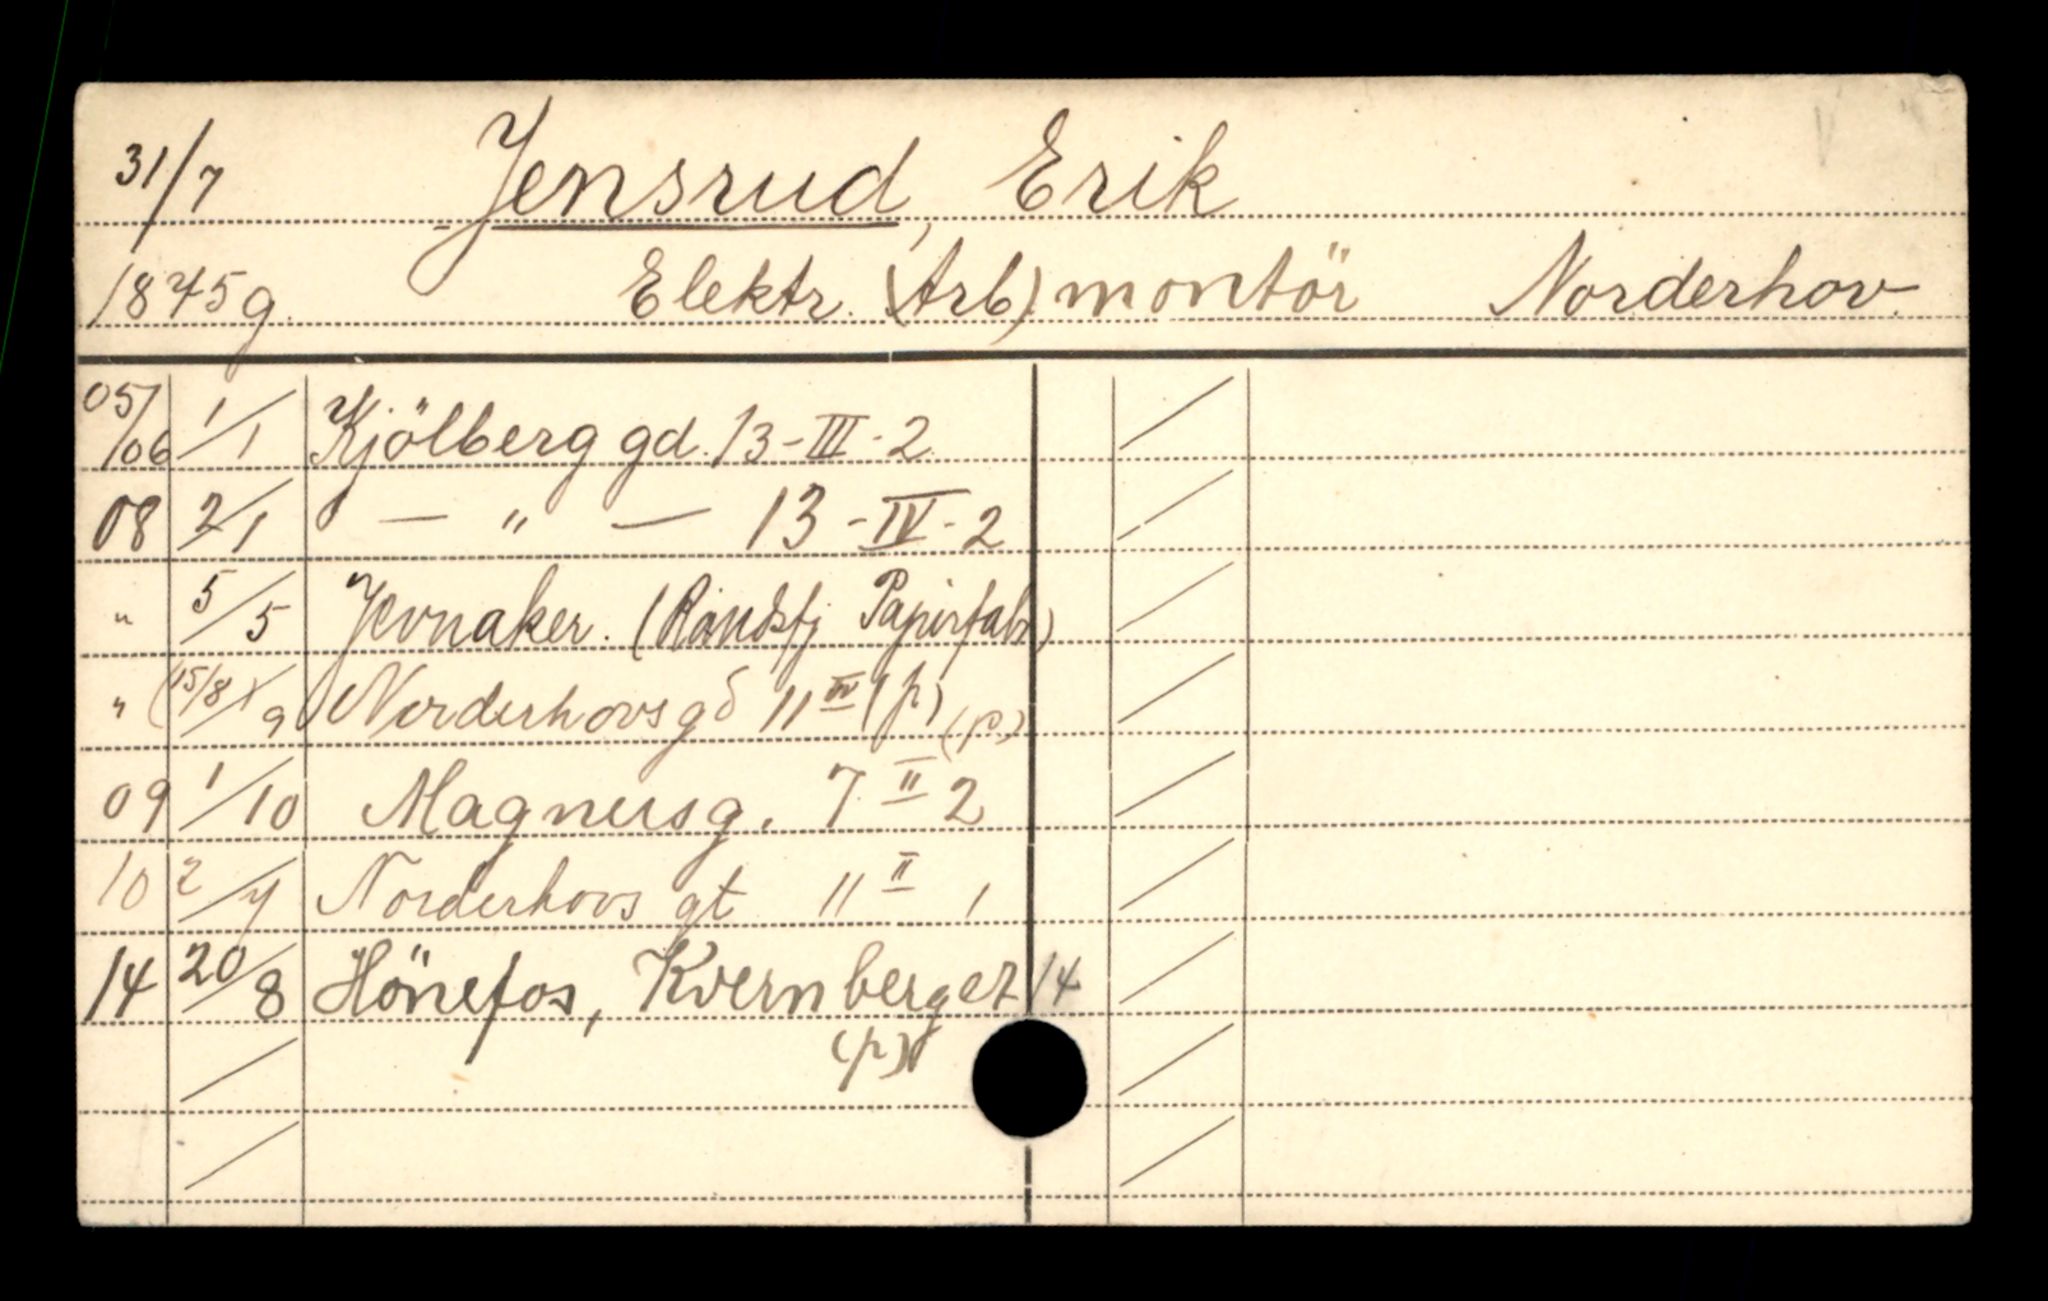 31/7 Jensrud, Erik
1875 g. Elektr. (Arb) montör Norderhov.
05/06 1/1 Kjölberg gd. 13-III-2.
08 2/1 — " — 13-IV-2
" 5/5 Jevnaker. (Randsfj Papirfabr)
" (15/8) 1/9 Norderhovsgd 11 IV (p) (p)
09 1/10 Magnusg. 7 II 2
10 2/4 Norderhovs gt 11 II 1
14 20/8 Hönefos, Kvernberget 14
(p)